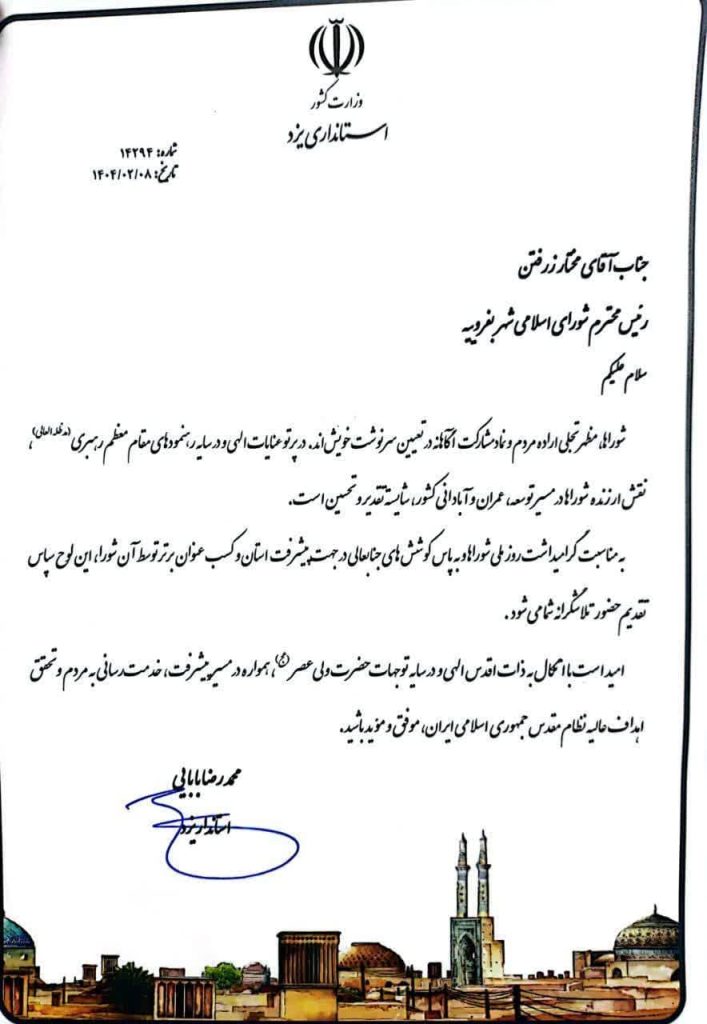 وزارت کشور
استانداری یزد
شماره: ۱۴۲۹۴
تاریخ: ۱۴۰۴/۰۲/۰۸
جناب آقای مختار زرفتن
رئیس محترم شورای اسلامی شهر بفروییه
سلام علیکم
شوراها، مظهر تجلی اراده مردم و نماد مشارکت آگاهانه در تعیین سرنوشت خویش‌اند. در پرتو عنایات الهی و در سایه رهنمودهای مقام معظم رهبری (مدظله العالی)،
نقش ارزنده شوراها در مسیر توسعه، عمران و آبادانی کشور، شایسته تقدیر و تحسین است.
به مناسبت گرامیداشت روز ملی شوراها و به پاس کوشش های جنابعالی در جهت پیشرفت استان و کسب عنوان برتر توسط آن شورا، این لوح سپاس
تقدیم حضور تلاشگرانه شما می شود.
امید است با اتکال به ذات اقدس الهی و در سایه توجهات حضرت ولی عصر (عج)، همواره در مسیر پیشرفت، خدمت رسانی به مردم و تحقق
اهداف عالیه نظام مقدس جمهوری اسلامی ایران، موفق و مؤید باشید.
محمدرضا بابایی
استاندار یزد